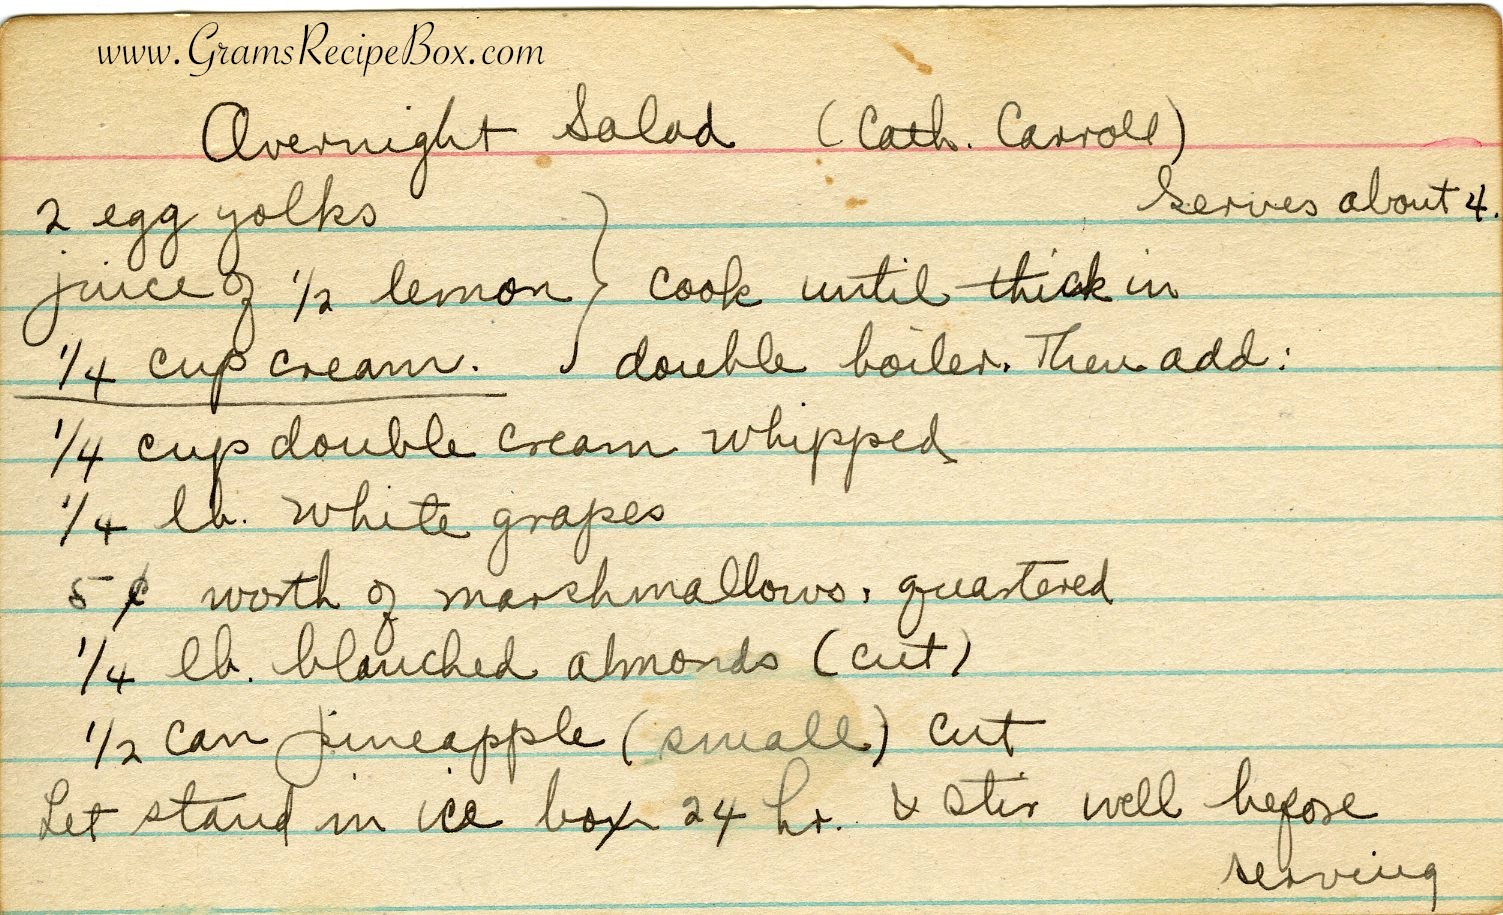 www.GramsRecipeBox.com
Overnight Salad (Cath. Carroll)
Serves about 4.
2 egg yolks
juice of 1/2 lemon } cook until thick in
1/4 cup cream. double boiler. Then add:
1/4 cup double cream whipped
1/4 lb. white grapes
5¢ worth of marshmallows, quartered
1/4 lb. blanched almonds (cut)
1/2 can pineapple (small) cut
Let stand in ice box 24 hr. & stir well before
serving